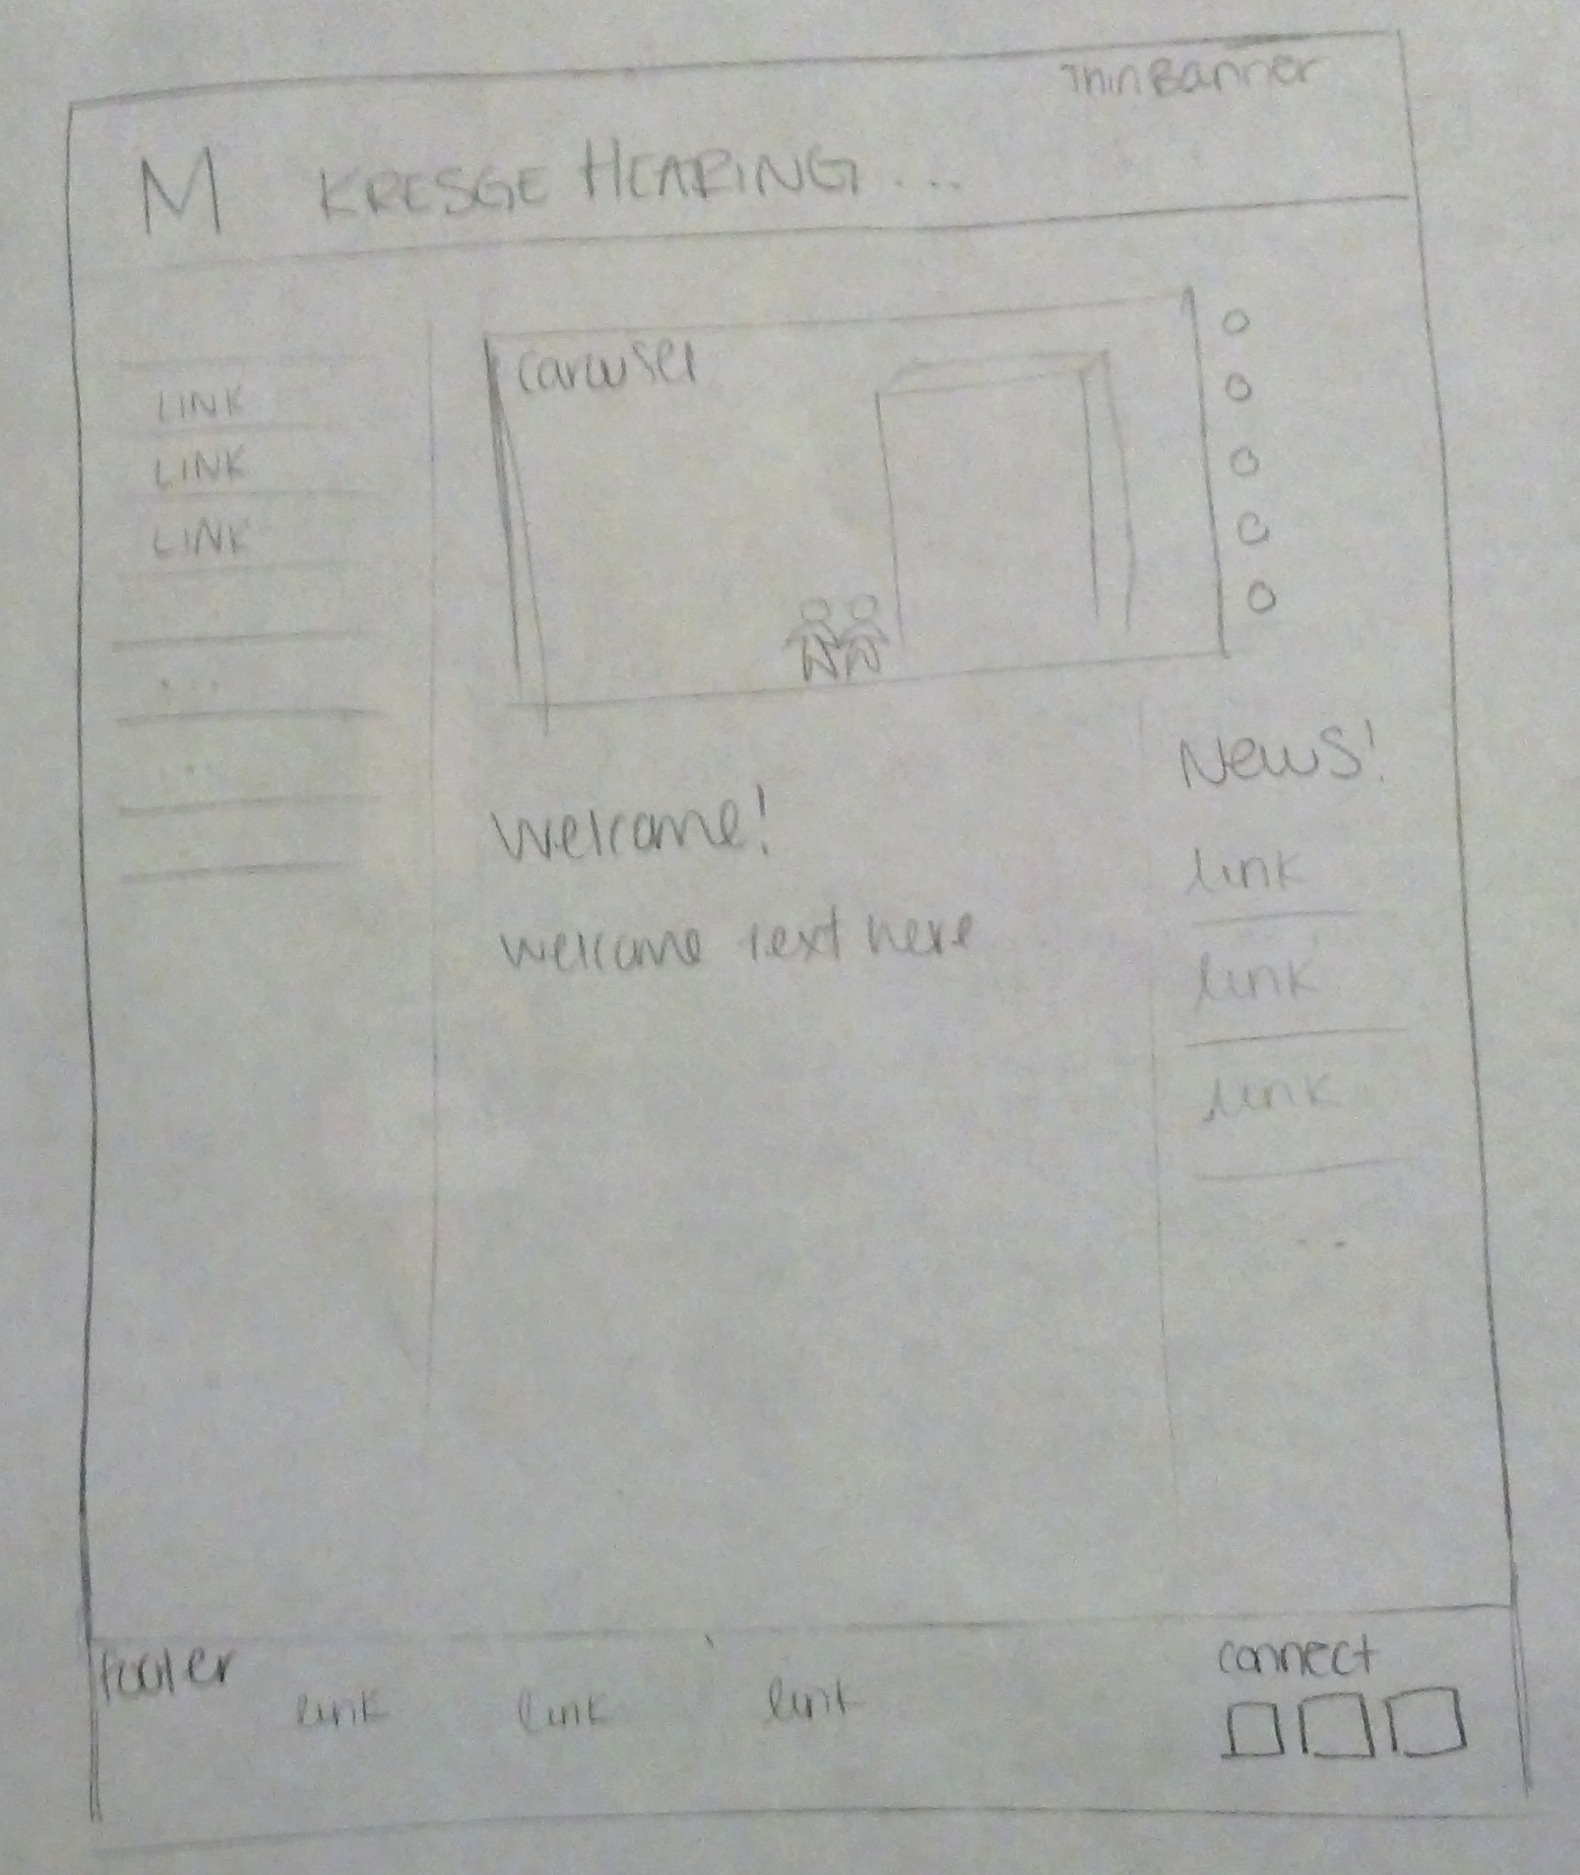 Thin Banner
M KRESGE HEARING ...
LINK
LINK
LINK
...
...
carousel
Welcome!
welcome text here
News!
link
link
link
..
footer
link link link
connect